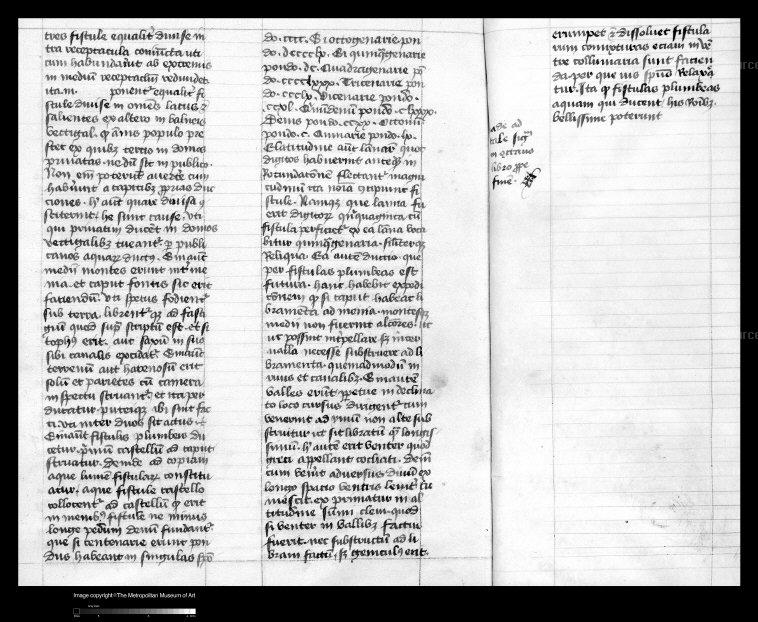 tres fistule equalit͛ diuise in
tra receptacula coniu͂cta uti
cum habundau͛it ab extremis
in mediu͂ receptaclm̄ redundet
ita in ponent͛ equalit͛ fi
stule diuise in om̄es lacus ⁊
salientes ex altero in balneis
vectigal. q͛ annis populo pre
stet ex quib⁊ tertio in domos
priuatas. ne du͂ sit in publico.
habu͛int a capitib⁊ p͛prias duc
ciones. h͛ aut͂ quare diuisa
stituerit. he sunt cause. uti
qui priuatim ducēt in domos
vectigalib⁊ tueant͛ p͛ publi
canos aquar͛ duct9. Sin aut͂
medii montes erunt int͛ me
nia. et caput fontis sic erit
faciendu͂. uti specus fodient͛
sub terra. librent͛ q⁊ ad fasti
giu͂ quod sup͛ scriptu͂ est. et si
toph9 erit. aut saxu͂ in suo
sibi canalis excidat͛. Sin aut͂
terrenu͂ aut harenosu͂ erit
solu͂ et parietes cu͂ camera
in specu struant͛. et ita per
ducatur. puteiq⁊ ibi sint fac
ti. uti inter duos sit actus.
Sin aut͂ fistulis plumbeis du
cetur. p͛mu͂ castellu͂ ad caput
struatur. deinde ad copiam
aque lumē fistular͛ constitu
atur. aque fistule castello
collocent͛ ad castellu͂ q͛ erit
in menib9. fistule ne minus
longe pedum denu͂ fundant͛.
que si centenarie erunt pon
dus habeant in singulas
do. cccc. Si octogenarie pon
do. dcccclx. Si quinq͂genarie
pondo. dc. Quadragenarie
do. cccclxxx. Tricenarie pon
do. ccclx. Vicenarie pondo.
ccxl. Quindenu͂ pondo. clxxx.
Denu͂ pondo. cxx. Octonu͂
pondo. c. Quinarie pondo. lx.
E latitudine aut͂ lam͂ar͛ quot
digitos habuerint anteq͛ in
rotundatione͂ flectant͛ magni
tudinu͂ ita noīa concipiunt fi
stule. Namq⁊ que lamna fu
erit digitor͛ qui͂quaginta. cu͂
fistula perficiet͛ ex ea lam̄a voca
bitur quinq͂genaria. similiterq⁊
reliqua. Ea aute͂ ductio que
per fistulas plumbeas est
futura. hanc habebit expedi
c͂onem q͛ si caput habeat li
bramēta ad menia. montesq⁊
medii non fuerint alc͛ores. ut
possint int͛pellare s⁊ inter
ualla necesse substruere ad li
bramenta. quemadmodu͂ in
riuis et canalib⁊. Sin aute͂
valles eru͂t p͛petue in declina
to loco cursus dirigent͛. cum
venerint ad imu͂ non alte sub
struitur ut sit libratu͂ q͛ longis
simu͂. h͛ aute͂ erit venter quod
greci appellant cochiati. Dein͂
cum venit adversus diuu͂ ex
longo spacio ventris leniter tu
mescit. exprimatur in al
titudine su͂mi cliui. quod
si venter in vallib⁊ factus
fuerit. nec substructu͂ ad li
bram factu͂. s⁊ genicul9 erit.
erumpet ⁊ dissoluet fistula
rum comixturas. etiam in vē
tre colluuiaria sunt facien
da. per que uis sp͛us relaxa
tur. Ita q͛ fistulas plumbeas
aquam qui ducent his
bellissime poterunt
ad
tale sig͛
in octauo
libro p͛pe
fine͂.
Image copyright©The Metropolitan Museum of Art